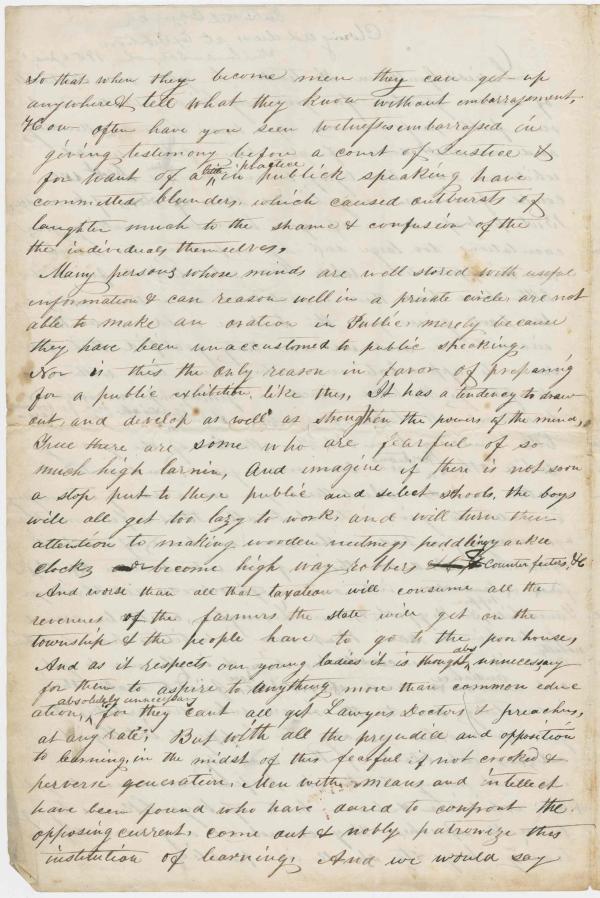 So that when they become men they can get up
anywhere & tell what they know without embarrasment,
How often have you seen witnesses embarrassed in
giving testimony before a court of Justice &
for want of a little practice in publick speaking have
committed blunders, which caused outbursts of
laughter much to the shame & confusion of the
the individuals themselves,
Many persons whose minds are well stored with useful
information & can reason well in a private circle, are not
able to make an oration in Public, merely because
they have been unaccustomed to public speaking.
Nor is this the only reason in favor of preparing
for a public exhibition, like this, It has a tendency to draw
out, and develop as well as strengthen the powers of the mind,
True there are some who are fearful of so
much high larnin, And imagine if there is not soon
a stop put to these public and select schools, the boys
will all get too lazy to work, and will turn their
attention to making wooden nutmegs peddling yankee
clocks become high way robbers counterfeiters, &C
And worse than all that taxation will consume all the
revenues of the farmers the state will get on the
township & the people have to go to the poor house,
And as it respects our young ladies it is thought abs unnecessary
for them to aspire to anything more than common educ
ation, absolutely unnecessary for they cant all get Lawyers Doctors & preachers,
at any rate, But with all the prejudice and opposition
to learning in the midst of this fearful if not crooked &
perverse generation, Men with means and intellect
have been found who have dared to confront the
opposing current, come out & nobly patronize this
institution of learning, And we would say